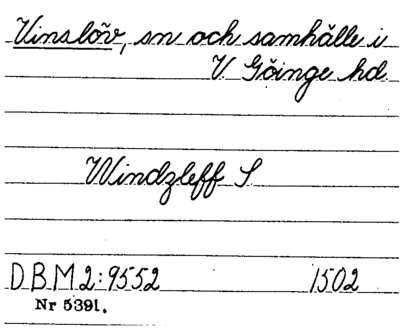 Vinslöv, sn och samhälle i
V. Göinge hd.
Windzleff S
DBM2:9552 1502
Nr 5391.